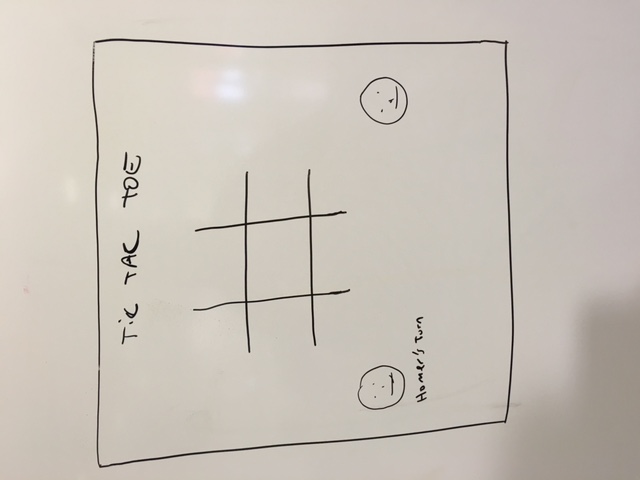 TiC TAC TOE
Homer's Turn